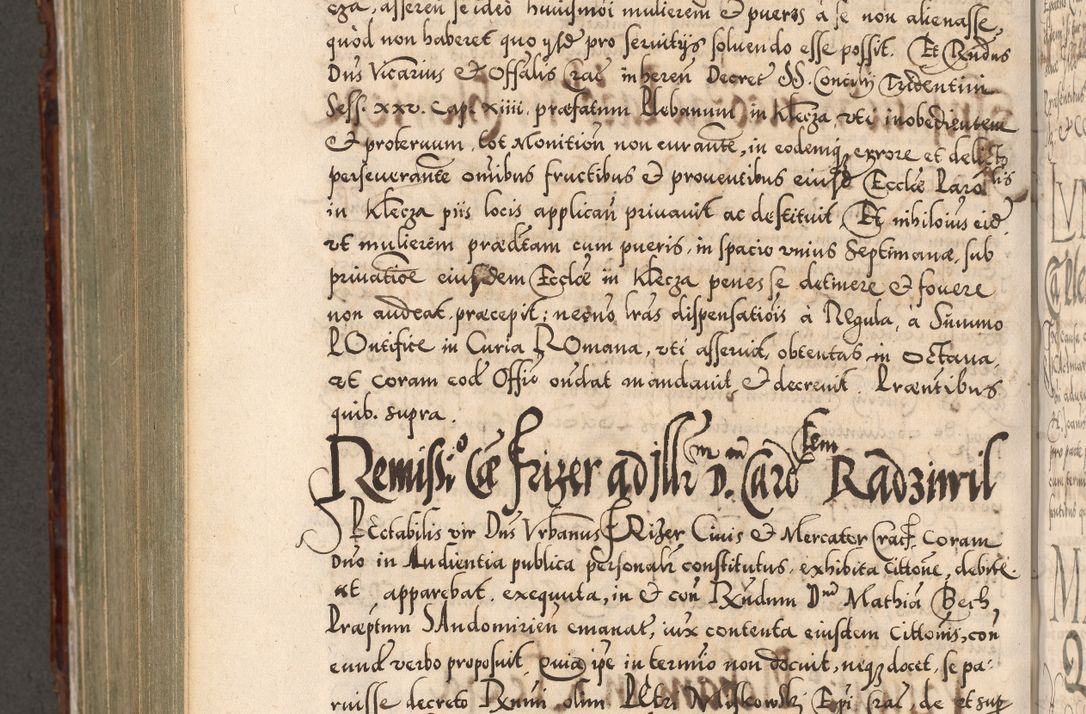 cza, asseren se ideo huiusmoi mulierem & pueros à se non alienasse,
quod non haberet quo ysd pro seruitijs soluendo esse possit. Et Rndus
Dns Vicarius & Offalis Crac inheren Decret SS. Concilij Tridentini
Sess. xxv. Cap. xiiii. præfatum Plebanum in Klecza, vti inobedientem
& proteruum, tot Monition non curante, in eodemq errore et delictis
perseuerante omibus fructibus & prouentibus eiusd Ecclæ Paro
in Klecza piis locis applican priuauit ac destituit. Et nihiloius eid,
vt mulierem prædtam cum pueris, in spacio vnius Septimanæ, sub
priuatione eiusdem Ecclæ in Klecza penes se detinere & fouere
non audeat, præcepit; necno lras dispensatiois à Regula, à Summo
POntifice in Curia ROmana, vti asseruit, obtentas, in Octaua,
vt coram eod Offio ondat mandauit & decreuit Præntibus
quib. supra.
Remissio Cæ Frizer ad Illrm D. Cardtem Radziwil
SPEctabilis vir Dns Vrbanus FRizer Ciuis & Mercator Crac. Coram
Dno in Audientia publica personalr constitutus, exhibita cittone, debite
vt apparebat, exequuta, in & con Rndum Dnu Mathia Bech,
Præptum SAndomirien emanat, iux contenta eiusdem Cittonis, con
eund verbo proposuit, quia ipe in termio non docuit, neq docet, se pa-
ruisse decreto Rnmi olim PEtri Miskowski Epi Crac, de et sup